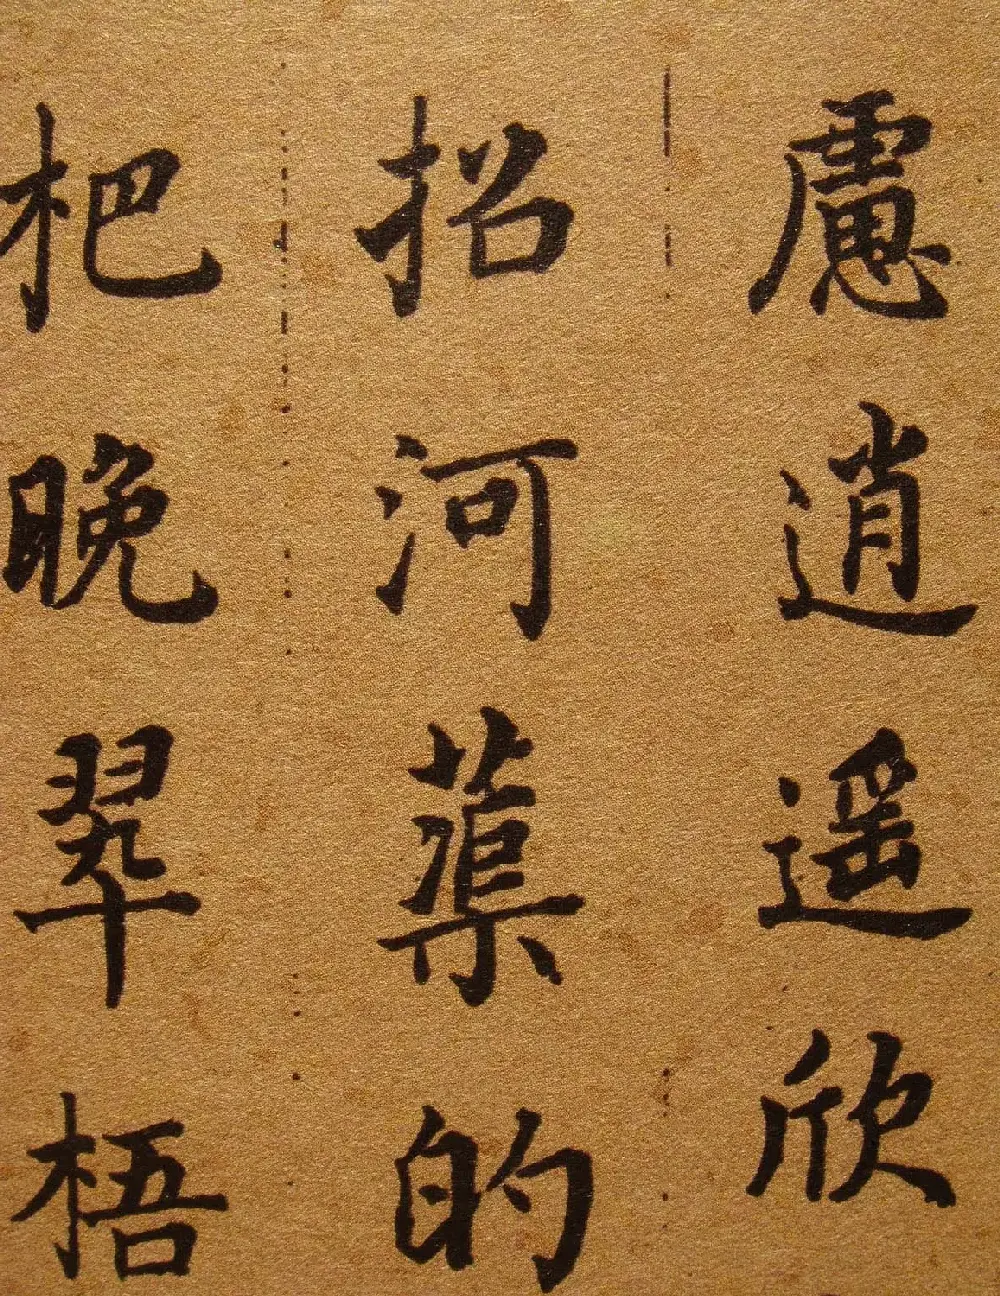 慮逍遥欣
招河蕖的
杷晚翠梧